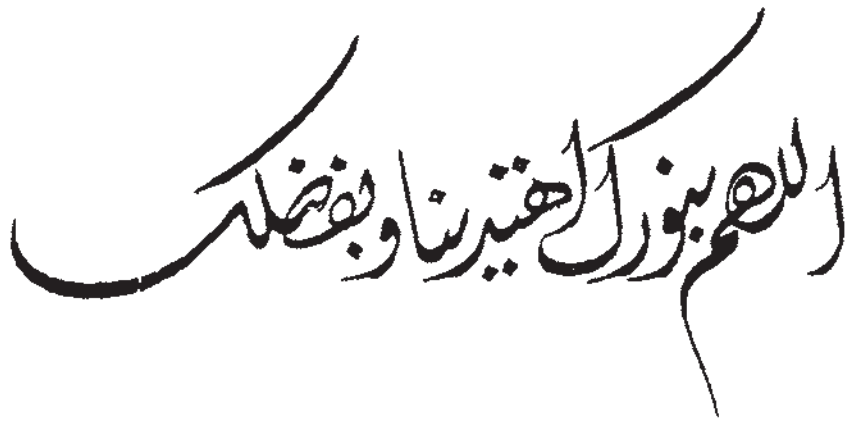 اللهم بنورك اهتدينا وبفضلك